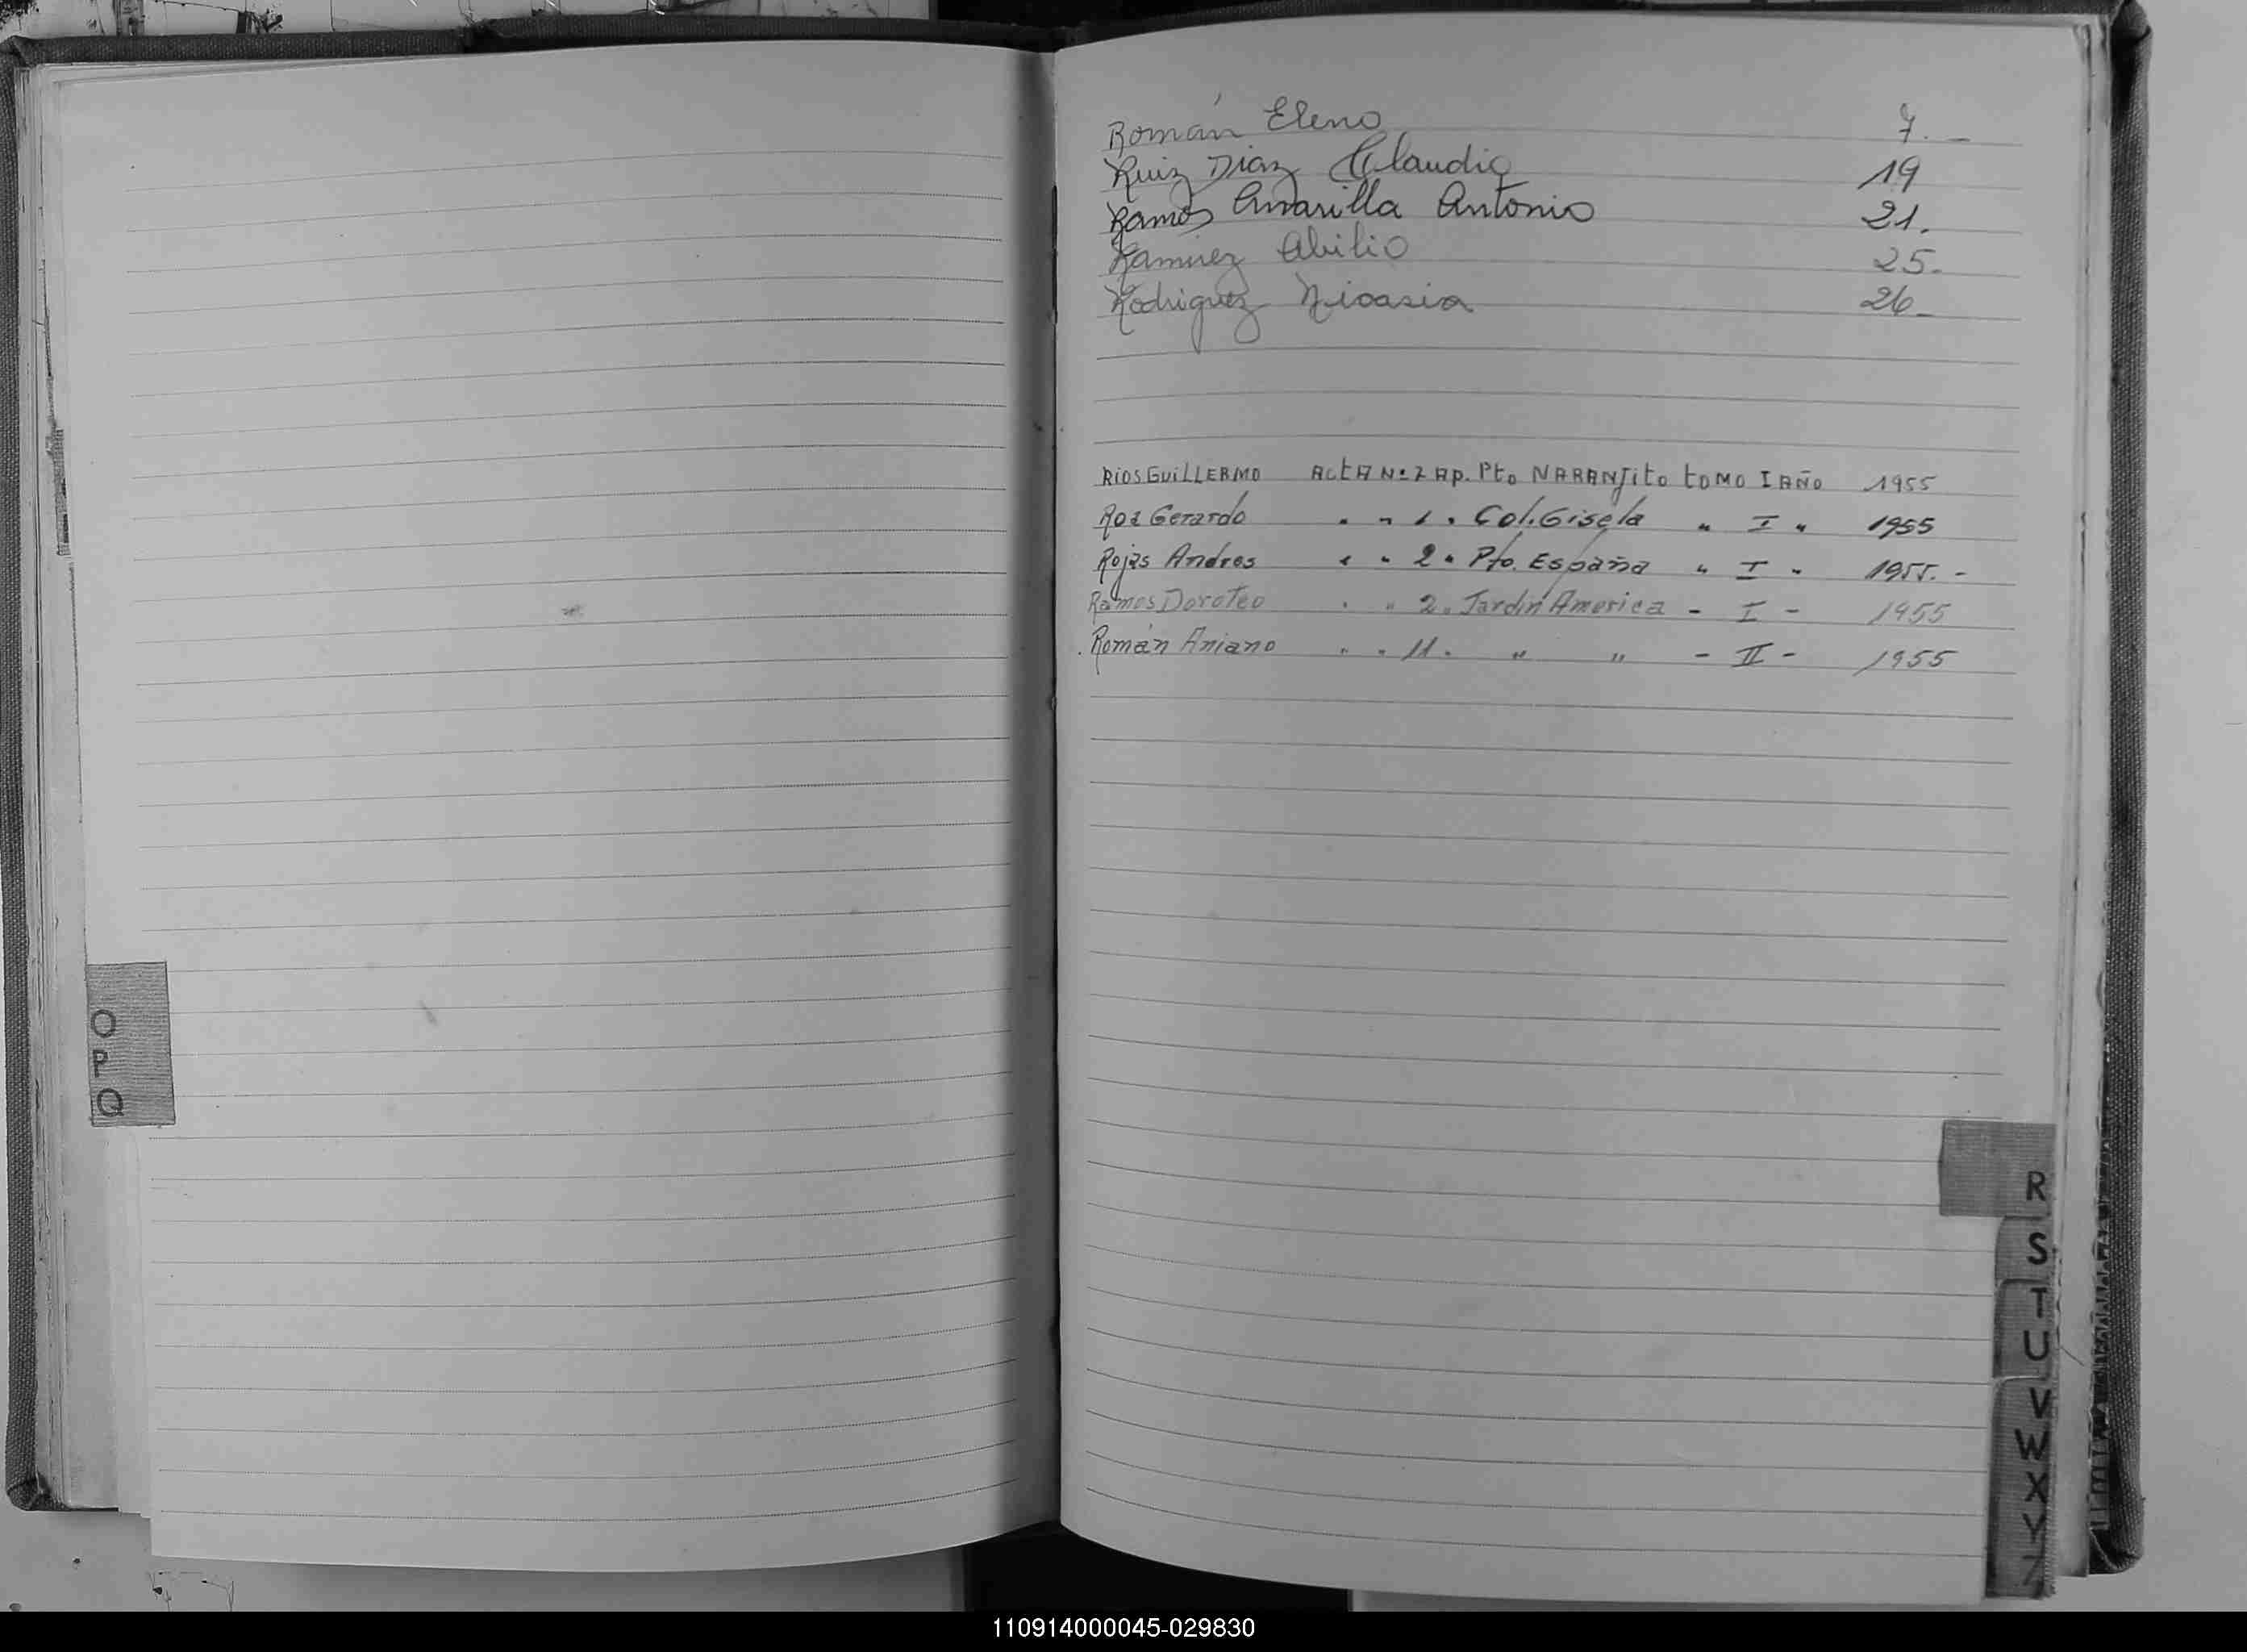 Román Eleno 7.-
Ruiz Diaz Claudio 19
Ramos Amarilla Antonio 21.
Ramirez Abilio 25.-
Rodriguez Nicasia 26-
RIOS GUILLERMO ACTA Nº 2 AP. Pto NARANJITO TOMO I AÑO 1955
Roa Gerardo " " 1 " Col. Gisela " I " 1955
Rojas Andres " " 2 " Pto. España " I " 1955.-
Ramos Doroteo " " 2 " Jardin America - I - 1955
Román Aniano " " 11 " " " - II - 1955
O
P
Q
R
S
T
U
V
W
X
Y
Z
110914000045-029830